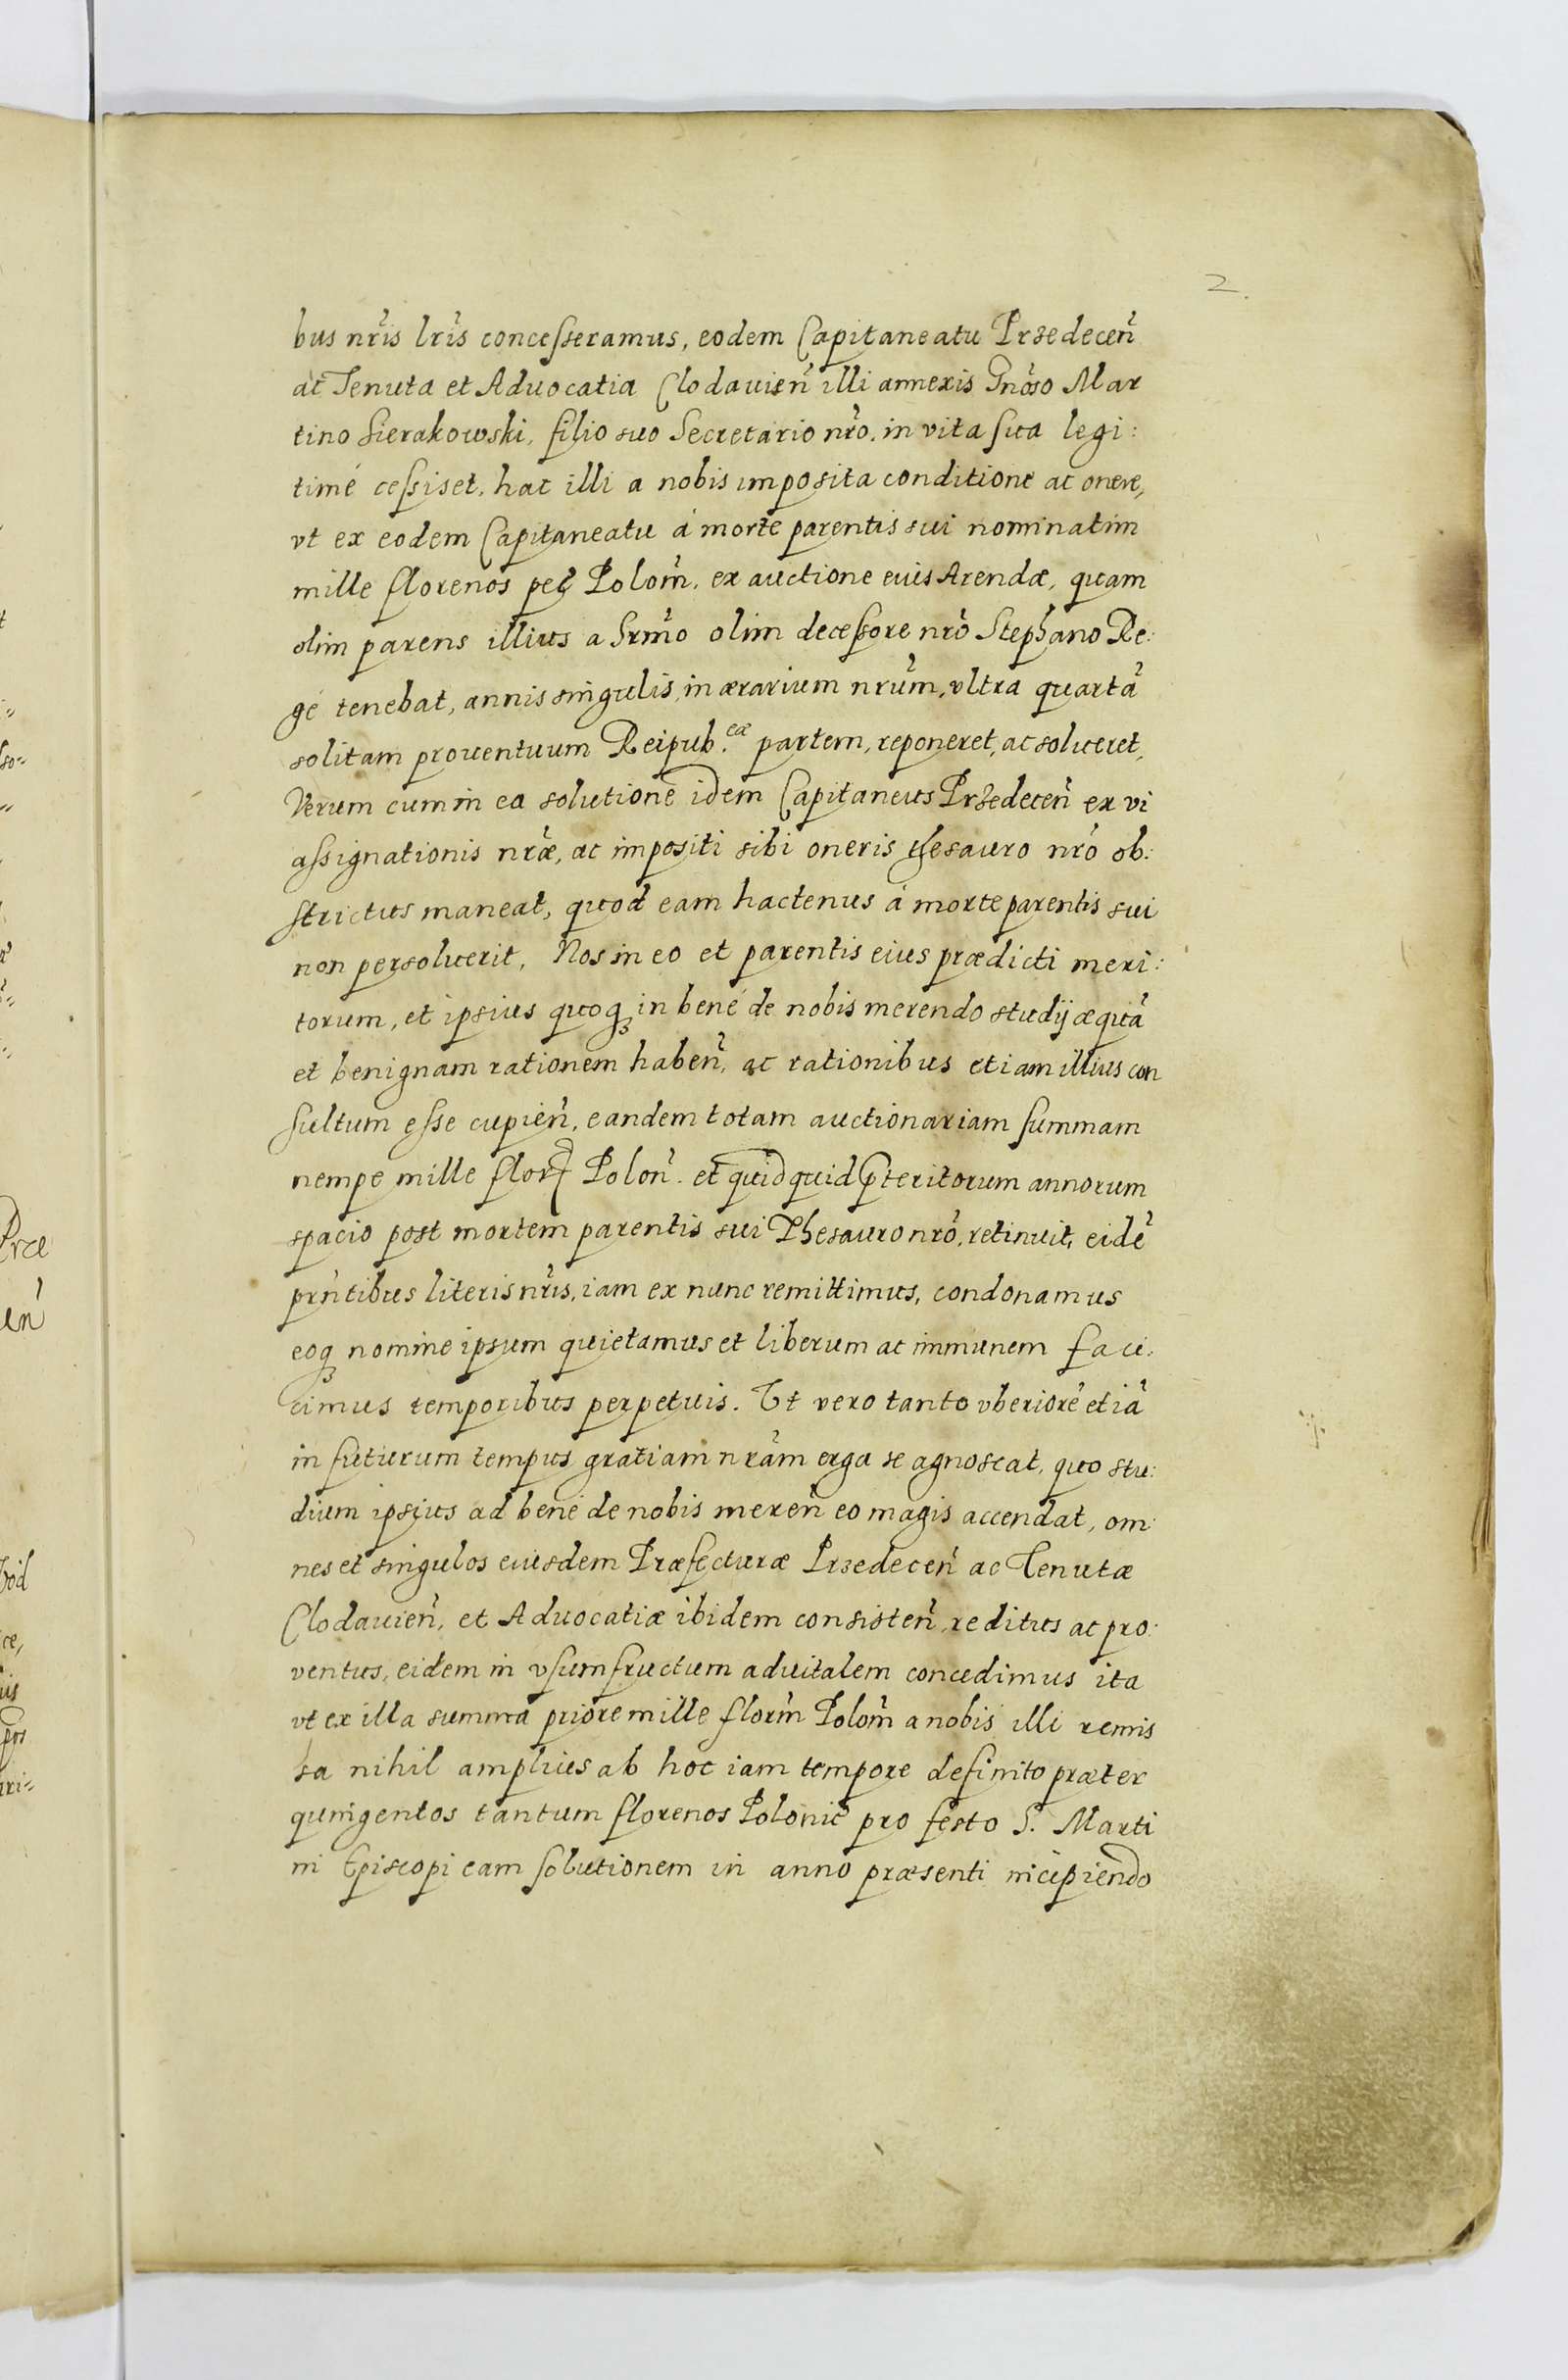 2.
bus nr̃is lr̃is concesseramus, eodem Capitaneatu Przedeceñ
ac Tenuta et Aduocatia Clodauieñ illi annexis Gñoso Mar
tino Sierakowski, filio suo Secretario nr̃o, in vita sua legi:
timé cessiset, hac illi a nobis imposita conditione ac onere,
vt ex eodem Capitaneatu á morte parentis sui nominatim
mille florenos pec̃ Polom̃, ex auctione eius Arendæ, quam
olim parens illius a Srm̃o olim decessore nr̃o Stephano Re:
ge tenebat, annis singulis, in ærarium nr̃um, vltra quartã
solitam prouentuum Reipub.cæ partem, reponeret, ac solueret,
Verum cum in ea solutione idem Capitaneus Przedeceñ ex vi
assignationis nr̃æ, ac impositi sibi oneris thesauro nr̃o ob:
strictus maneat, quod eam hactenus á morte parentis sui
non persoluerit, Nos in eo et parentis eius prædicti meri:
torum, et ipsius quoq3 in bené de nobis merendo studij æquã
et benignam rationem habeñ, ac rationibus etiam illius con
sultum esse cupieñ, eandem totam auctionariam summam
nempe mille flor Poloñ. et quidquid p̃teritorum annorum
spacio post mortem parentis sui Thesauro nr̃o, retinuit, eidẽ
prñtibus literis nr̃is, iam ex nunc remittimus, condonamus
eoq3 nomine ipsum quietamus et liberum ac immunem faci:
cimus temporibus perpetuis. Vt vero tanto vberiorẽ etiã
in futurum tempus gratiam nr̃am erga se agnoscat, quo stu:
dium ipsius ad bené de nobis mereñ eo magis accendat, om
nes et singulos eiusdem Præfecturæ Przedeceñ ac Tenutæ
Clodauieñ, et Aduocatiæ ibidem consisteñ, reditus ac pro:
ventus, eidem in vsumfructum aduitalem concedimus ita
vt ex illa summa priore mille florm̃ Polom̃ a nobis illi remis
sa nihil amplius ab hoc iam tempore definito præter
quingentos tantum florenos Polonic̃ pro festo S. Marti
ni Episcopi eam solutionem in anno præsenti incipiendo